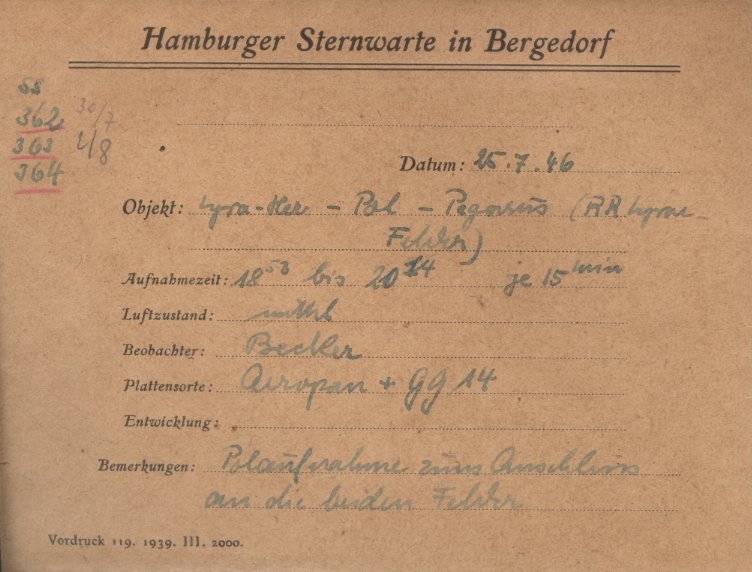 Hamburger Sternwarte in Bergedorf
SS
362 30/7
363 1/8
364
Datum: 25.7.46
Objekt: Lyra-Her - Pol - Pegasus (RR Lyrae-
Felder)
Aufnahmezeit: 18 53 bis 20 14 je 15 min
Luftzustand: mittel
Beobachter: Becker
Plattensorte: Aeropan + GG 14
Entwicklung:
Bemerkungen: Polaufnahme zum Anschluss
an die beiden Felder
Vordruck 119. 1939. III. 2000.